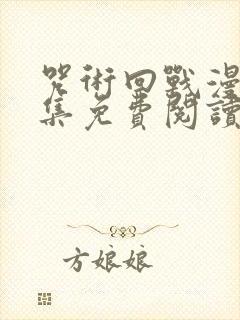 咒術回戰漫
集免費閱讀
方娘娘